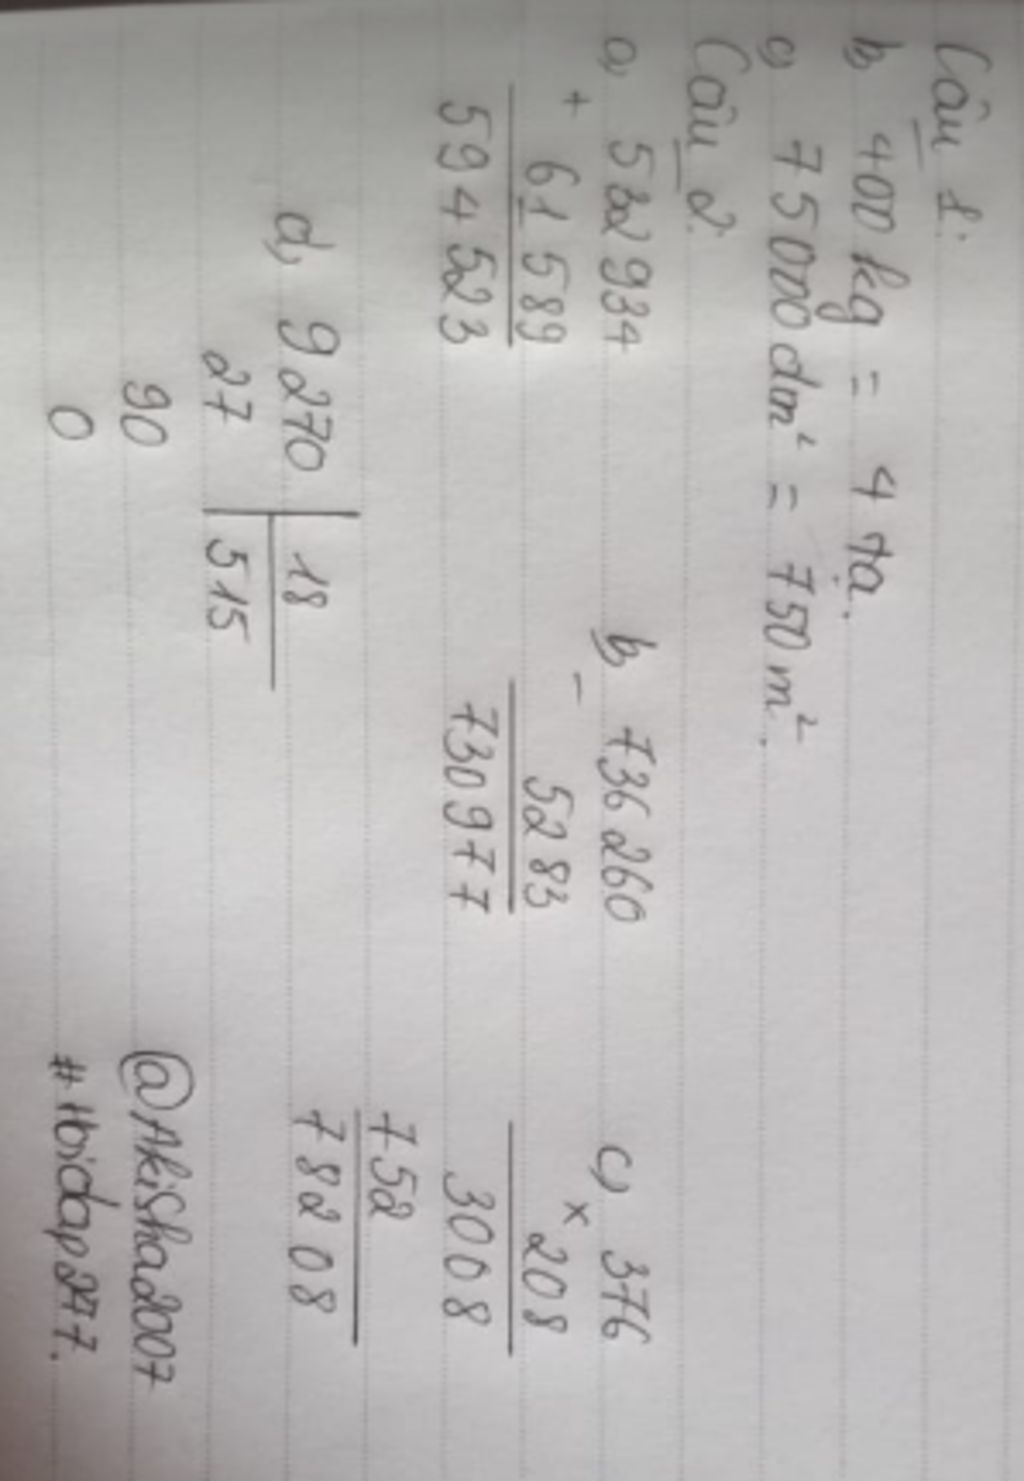 Câu 1:
b, 400 kg = 4 tạ.
c, 75000 dm² = 750 m².
Câu 2:
a, 532934
+ 61589
594523
b, 736260
- 5283
730977
c, 376
× 208
3008
752
78208
d, 9270 | 18
27 515
90
0
@Akisha2007
#Hoidap247.